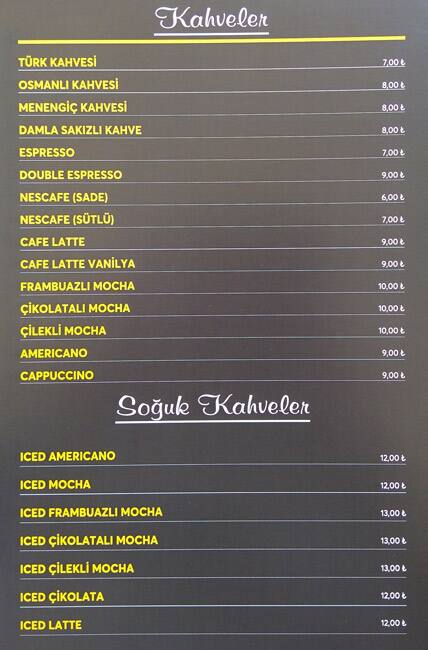 Kahveler
TÜRK KAHVESİ 7,00 ₺
OSMANLI KAHVESİ 8,00 ₺
MENENGİÇ KAHVESİ 8,00 ₺
DAMLA SAKIZLI KAHVE 8,00 ₺
ESPRESSO 7,00 ₺
DOUBLE ESPRESSO 9,00 ₺
NESCAFE (SADE) 6,00 ₺
NESCAFE (SÜTLÜ) 7,00 ₺
CAFE LATTE 9,00 ₺
CAFE LATTE VANİLYA 9,00 ₺
FRAMBUAZLI MOCHA 10,00 ₺
ÇİKOLATALI MOCHA 10,00 ₺
ÇİLEKLİ MOCHA 10,00 ₺
AMERICANO 9,00 ₺
CAPPUCCINO 9,00 ₺
Soğuk Kahveler
ICED AMERICANO 12,00 ₺
ICED MOCHA 12,00 ₺
ICED FRAMBUAZLI MOCHA 13,00 ₺
ICED ÇİKOLATALI MOCHA 13,00 ₺
ICED ÇİLEKLİ MOCHA 13,00 ₺
ICED ÇİKOLATA 12,00 ₺
ICED LATTE 12,00 ₺